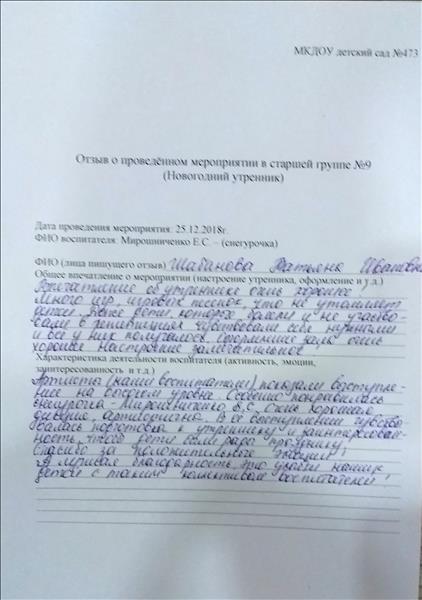 МКДОУ детский сад №473
Отзыв о проведённом мероприятии в старшей группе №9
(Новогодний утренник)
Дата проведения мероприятия. 25.12.2018г.
ФИО воспитателя: Мирошниченко Е.С. – (снегурочка)
ФИО (лица пищущего отзыв) Шабанова Татьяна Ивановна
Общее впечатление о мероприятии (настроение утренника, оформление и т.д.)
Впечатление об утреннике очень хорошее!
Много игр, игровых песенок, что не утомляет
детей. Даже дети, которые болели и не участво-
вали в репетициях чувствовали себя нужными
и все у них получалось. Оформление зала очень
хорошее настроение замечательное
Характеристика деятельности воспитателя (активность, эмоции,
заинтересованность и т.д.)
Артисты (наши воспитатели) показали выступле-
ние на высоком уровне. Особенно понравилась
снегурочка – Мирошниченко Е.С. Очень хорошая
дикция, артистична. В её выступлении чувство-
валась подготовка к утреннику и заинтересован-
ность, чтобы дети были рады празднику.
Спасибо за положительные эмоции!
А личная благодарность, это удача наших
детей с таким коллективом воспитателей!